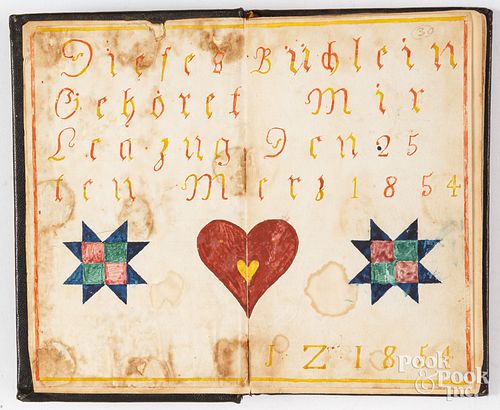 30
Dieses Büchlein
Gehöret Mir
Lea zug Den 25
ten Merz 1854
1 Z 1854
Pook & Pook Inc.